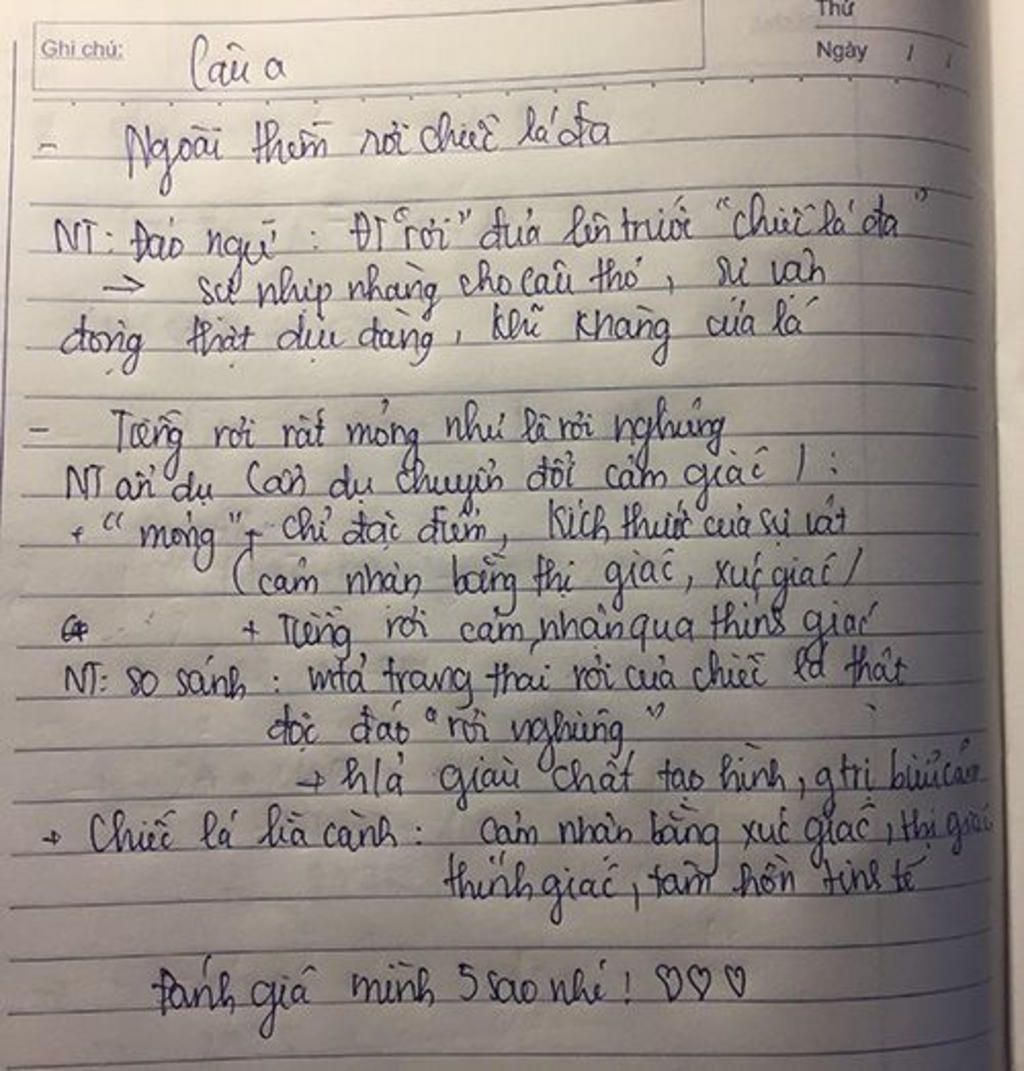 Thứ
Ghi chú: Câu a
Ngày / /
- Ngoài thềm rơi chiếc lá đa
NT: Đảo ngữ : ĐT "rơi" đưa lên trước "chiếc lá đa"
→ sự nhịp nhàng cho câu thơ, sự vận
động thật dịu dàng, khẽ khàng của lá
- Tiếng rơi rất mỏng như là rơi nghiêng
NT ẩn dụ (ẩn dụ chuyển đổi cảm giác) :
+ "mỏng" + chỉ đặc điểm, kích thước của sự vật
(cảm nhận bằng thị giác, xúc giác)
+ Tiếng rơi cảm nhận qua thính giác
NT: so sánh : mtả trạng thái rơi của chiếc lá thật
độc đáo "rơi nghiêng"
→ h/ả giàu chất tạo hình, gtrị biểu cảm
→ Chiếc lá lìa cành : cảm nhận bằng xúc giác, thị giác
thính giác, tâm hồn tinh tế
Đánh giá mình 5 sao nhé ! ♡♡♡